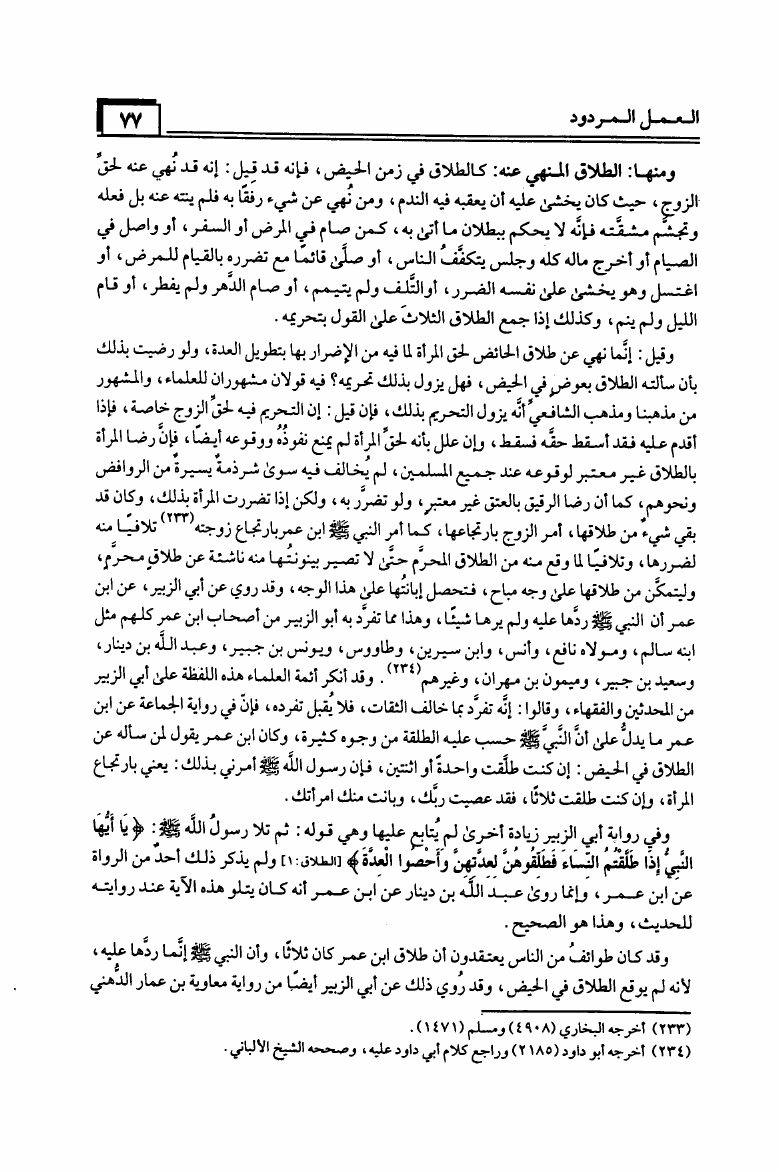 العمل المردود
٧٧
ومنها: الطلاق المنهي عنه: كالطلاق في زمن الحيض، فإنه قد قيل: إنه قد نُهي عنه لحقِّ
الزوج، حيث كان يخشىٰ عليه أن يعقبه فيه الندم، ومن نُهي عن شيء رفقًا به فلم ينته عنه بل فعله
وتجشَّم مشقَّته فإنَّه لا يحكم ببطلان ما أتىٰ به، كمن صام في المرض أو السفر، أو واصل في
الصيام أو أخرج ماله كله وجلس يتكفَّفُ الناس، أو صلَّىٰ قائمًا مع تضرره بالقيام للمرض، أو
اغتسل وهو يخشىٰ علىٰ نفسه الضرر، أوالتَّلف ولم يتيمم، أو صام الدَّهر ولم يفطر، أو قام
الليل ولم ينم، وكذلك إذا جمع الطلاق الثلاثَ علىٰ القول بتحريمه.
وقيل: إنَّما نهي عن طلاق الحائض لحق المرأة لما فيه من الإضرار بها بتطويل العدة، ولو رضيت بذلك
بأن سألته الطلاق بعوضٍ في الحيض، فهل يزول بذلك تحريمه؟ فيه قولان مشهوران للعلماء، والمشهور
من مذهبنا ومذهب الشافعيِّ أنَّه يزول التحريم بذلك، فإن قيل: إن التحريم فيه لحقِّ الزوج خاصة، فإذا
أقدم عليه فقد أسقط حقَّه فسقط، وإن علل بأنه لحقِّ المرأة لم يمنع نفوذُهُ ووقوعه أيضًا، فإنَّ رضا المرأة
بالطلاق غير معتبر لوقوعه عند جميع المسلمين، لم يُخالف فيه سوىٰ شرذمةٌ يسيرةٌ من الروافض
ونحوهم، كما أن رضا الرقيق بالعتق غير معتبرٍ، ولو تضرَّر به، ولكن إذا تضررت المرأة بذلك، وكان قد
بقي شيءٌ من طلاقها، أمر الزوج بارتجاعها، كما أمر النبي ﷺ ابن عمربارتجاع زوجته(٢٣٣) تلافيًا منه
لضررها، وتلافيًا لما وقع منه من الطلاق المحرَّم حتَّىٰ لا تصير بينونتُها منه ناشئة عن طلاقٍ محرَّمٍ،
وليتمكَّن من طلاقها علىٰ وجه مباح، فتحصل إبانتُها علىٰ هذا الوجه، وقد روي عن أبي الزبير، عن ابن
عمر أن النبي ﷺ ردَّها عليه ولم يرها شيئًا، وهذا مما تفرَّد به أبو الزبير من أصحاب ابن عمر كلهم مثل
ابنه سالم، ومولاه نافع، وأنس، وابن سيرين، وطاووس، ويونس بن جبير، وعبد اللَّه بن دينار،
وسعيد بن جبير، وميمون بن مهران، وغيرهم(٢٣٤). وقد أنكر أئمة العلماء هذه اللفظة علىٰ أبي الزبير
من المحدثين والفقهاء، وقالوا: إنَّه تفرَّد بما خالف الثقات، فلا يُقبل تفرده، فإنّ في رواية الجماعة عن ابن
عمر ما يدلُّ علىٰ أنَّ النَّبيَّ ﷺ حسب عليه الطلقة من وجوه كثيرة، وكان ابن عمر يقول لمن سأله عن
الطلاق في الحيض: إن كنت طلَّقت واحدةً أو اثنتين، فإن رسول اللَّه ﷺ أمرني بذلك: يعني بارتجاع
المرأة، وإن كنت طلقت ثلاثًا، فقد عصيت ربَّك، وبانت منك امرأتك.
وفي رواية أبي الزبير زيادة أخرىٰ لم يُتابع عليها وهي قوله: ثم تلا رسولُ اللَّه ﷺ: ﴿يَا أَيُّهَا
النَّبِيُّ إِذَا طَلَّقْتُمُ النِّسَاءَ فَطَلِّقُوهُنَّ لِعِدَّتِهِنَّ وَأَحْصُوا الْعِدَّةَ﴾ [الطلاق:١] ولم يذكر ذلك أحدٌ من الرواة
عن ابن عمر، وإنما روىٰ عبد اللَّه بن دينار عن ابن عمر أنه كان يتلو هذه الآية عند روايته
للحديث، وهذا هو الصحيح.
وقد كان طوائفُ من الناس يعتقدون أن طلاق ابن عمر كان ثلاثًا، وأن النبي ﷺ إنَّما ردَّها عليه،
لأنه لم يوقع الطلاق في الحيض، وقد رُوي ذلك عن أبي الزبير أيضًا من رواية معاوية بن عمار الدُّهني
(٢٣٣) أخرجه البخاري (٤٩٠٨) ومسلم (١٤٧١).
(٢٣٤) أخرجه أبو داود (٢١٨٥) وراجع كلام أبي داود عليه، وصححه الشيخ الألباني.